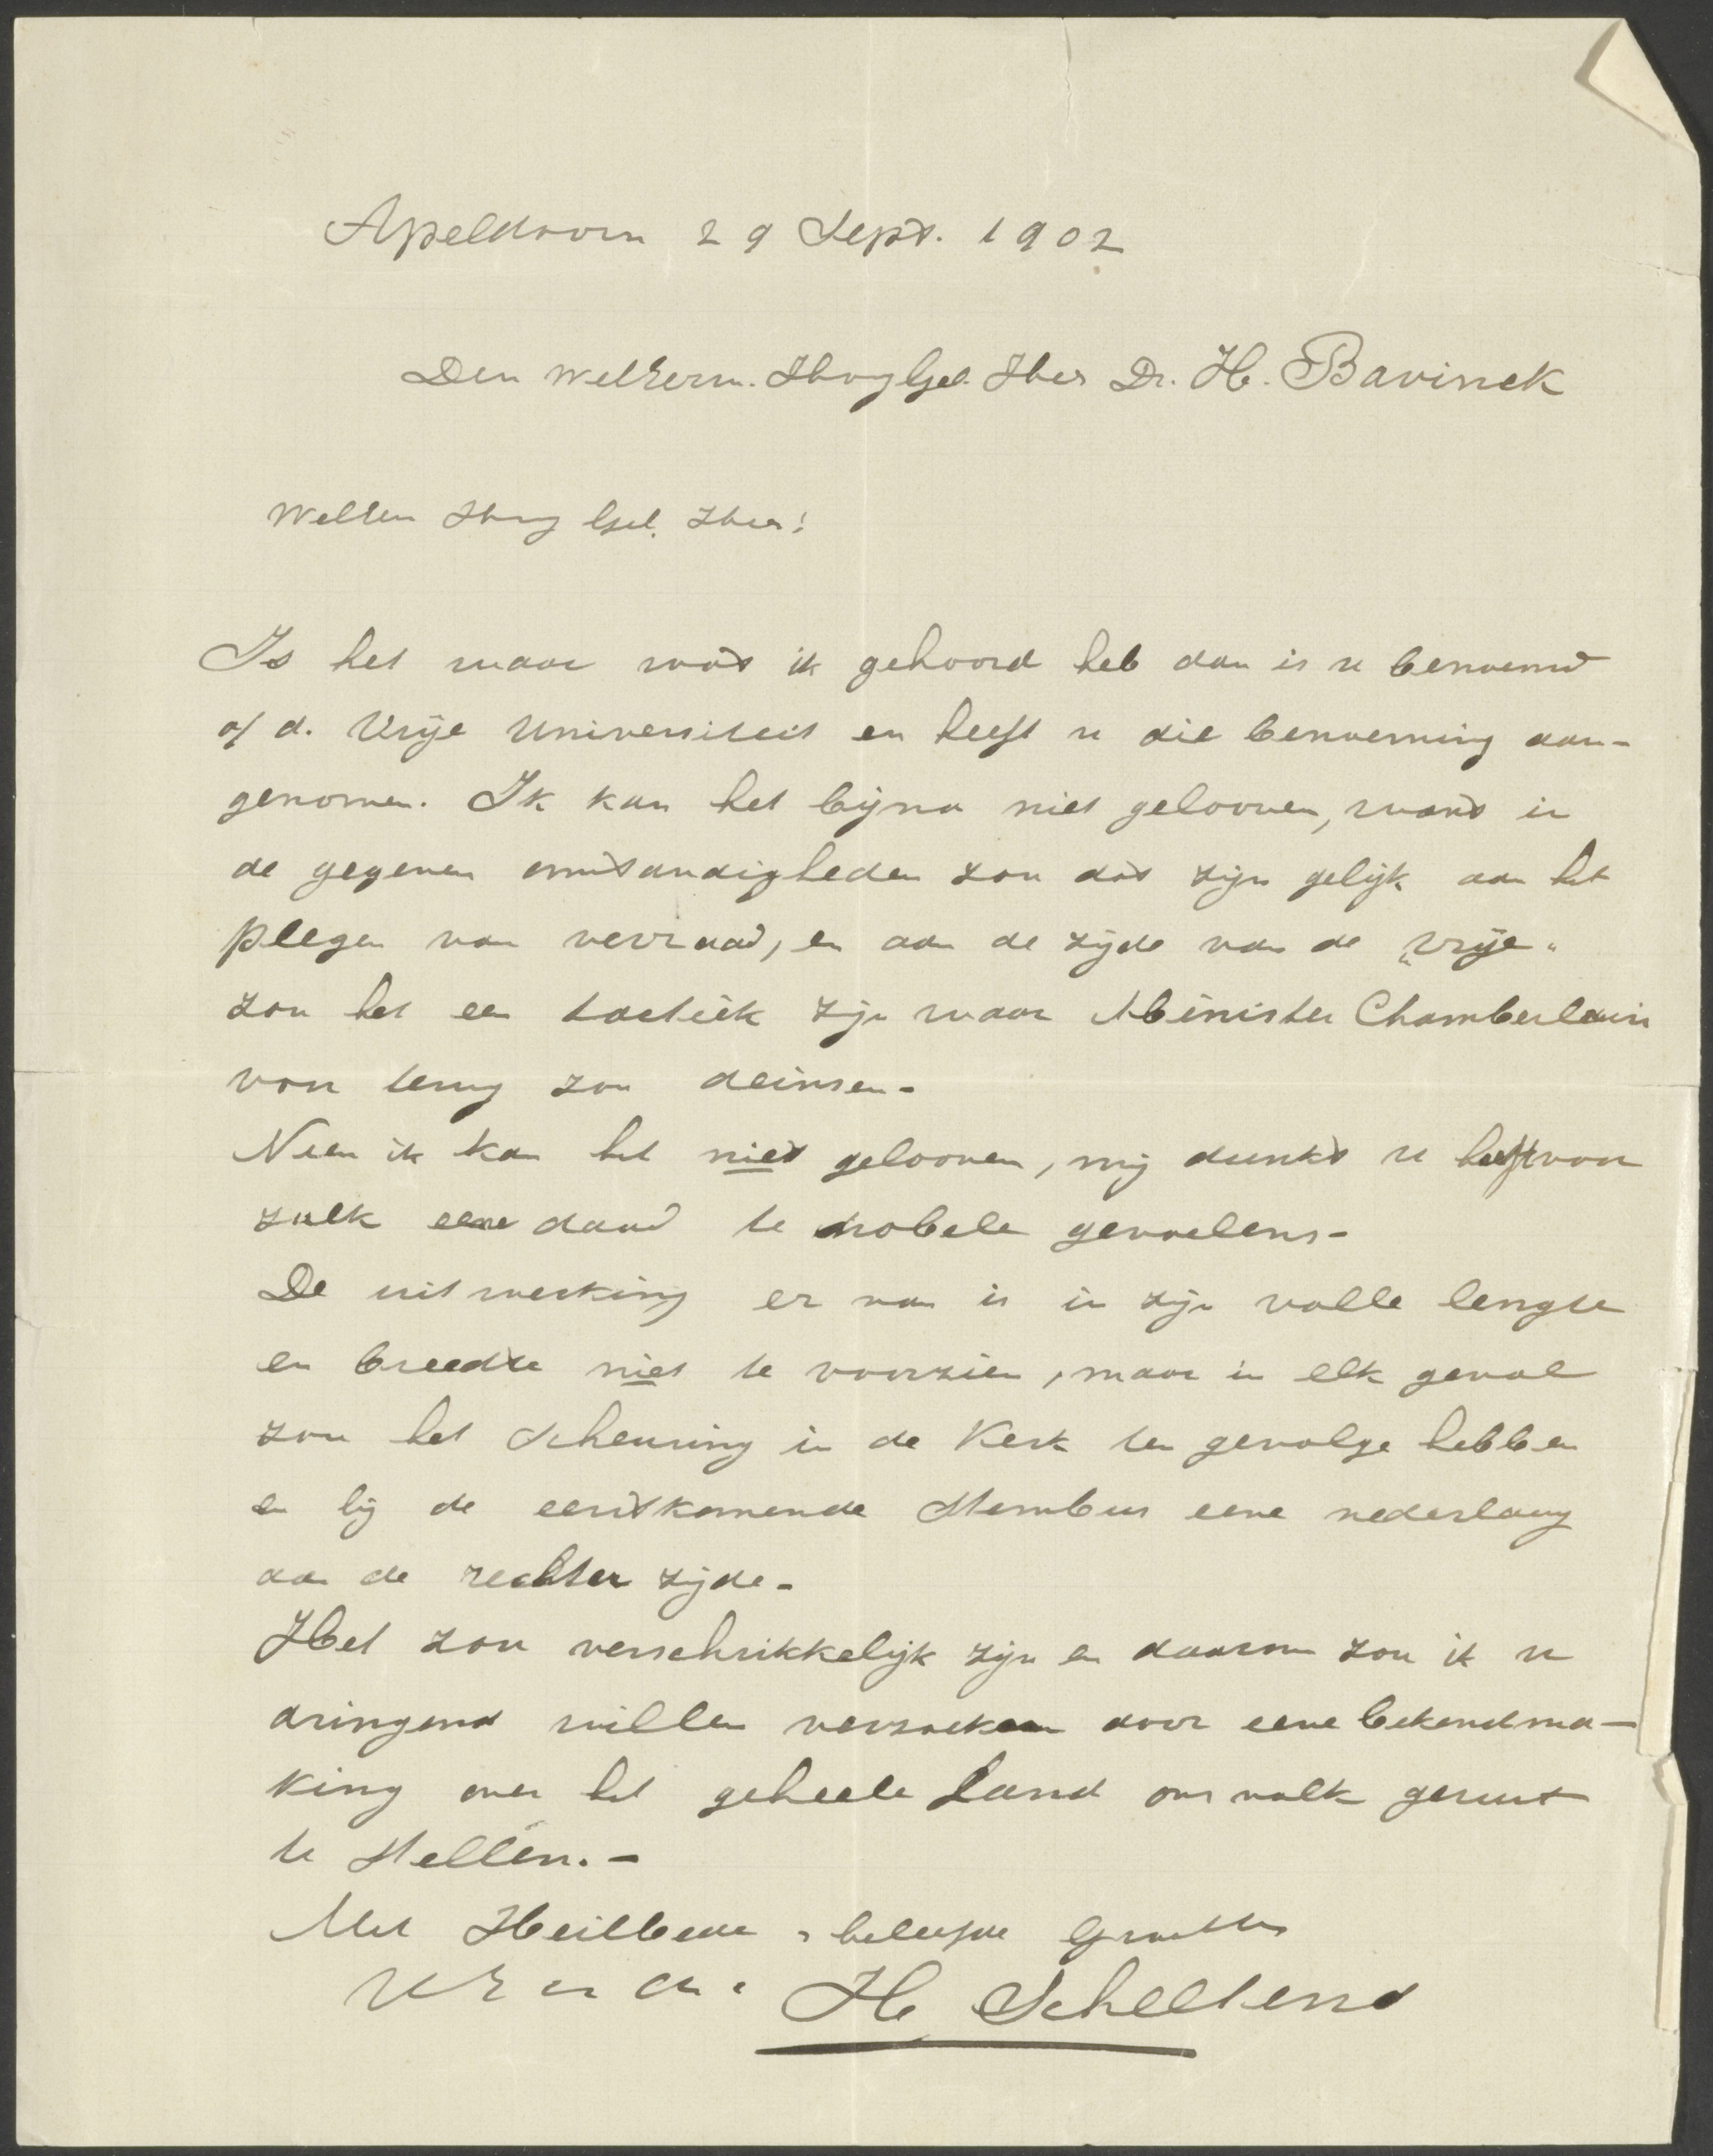 Apeldoorn 29 Sept. 1902
Den WelEerw. HoogGel. Heer Dr. H. Bavinck
WelEerw HoogGel. Heer!
Is het waar wat ik gehoord heb dan is u benoemd
a/d. Vrije Universiteit en heeft u die benoeming aan-
genomen. Ik kan het bijna niet gelooven, want in
de gegeven omstandigheden zou dat zijn gelijk aan het
plegen van verraad, en aan de zijde van de „Vrije"
zou het een tactiek zijn waar Minister Chamberlain
voor terug zou deinsen-
Neen ik kan het niet gelooven, mij dunkt u heeft voor
zulk eene daad te nobele gevoelens-
De uitwerking er van is in zijn volle lengte
en breedte niet te voorzien, maar in elk geval
zou het scheuring in de Kerk ten gevolge hebben
en bij de eerstkomende Stembus eene nederlaag
aan de rechter zijde-
Het zou verschrikkelijk zijn en daarom zou ik u
dringend willen verzoeken door eene bekendma-
king over het geheele Land ons volk gerust
te stellen.-
Met Heilbede & beleefde Groeten
H Schellend